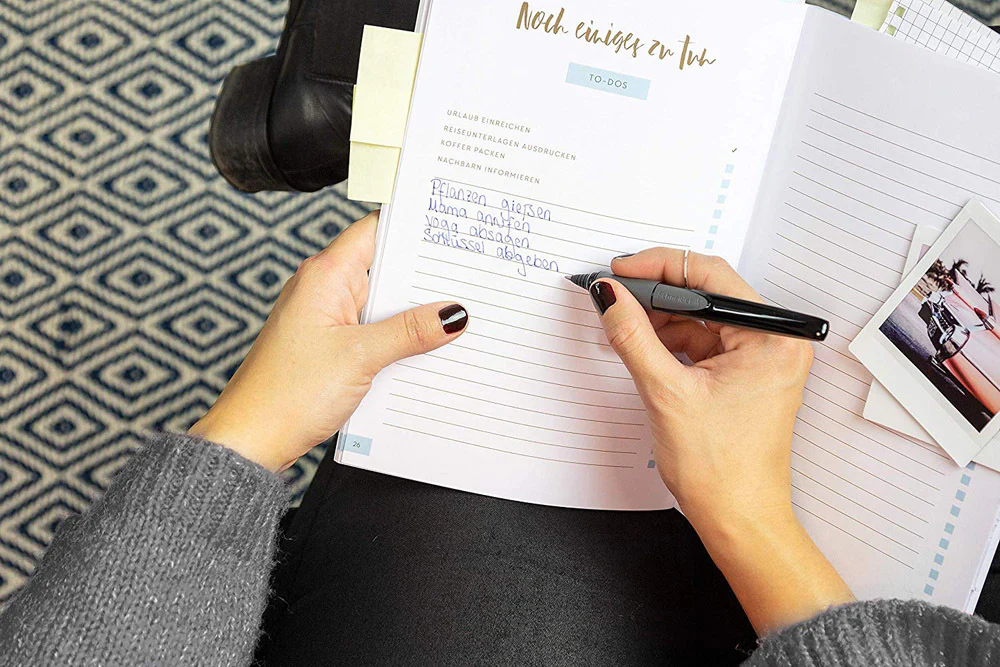 Noch einiges zu tun
TO-DOS
URLAUB EINREICHEN
REISEUNTERLAGEN AUSDRUCKEN
KOFFER PACKEN
NACHBARN INFORMIEREN
Pflanzen giessen
Mama anrufen
Yoga absagen
Schlüssel abgeben
26